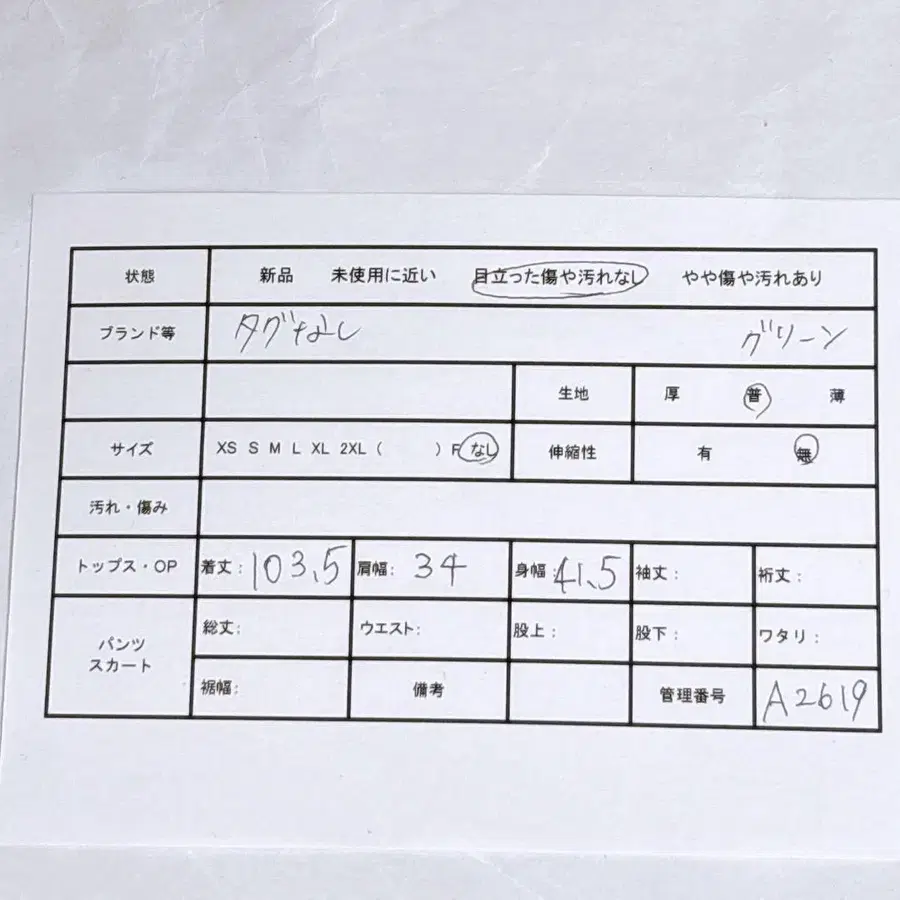 状態 新品 未使用に近い 目立った傷や汚れなし やや傷や汚れあり
ブランド等 タグなし グリーン
生地 厚 普 薄
サイズ XS S M L XL 2XL ( ) F なし 伸縮性 有 無
汚れ・傷み
トップス・OP 着丈: 103.5 肩幅: 34 身幅: 41.5 袖丈: 裄丈:
パンツ スカート 総丈: ウエスト: 股上: 股下: ワタリ:
裾幅: 備考 管理番号 A2619